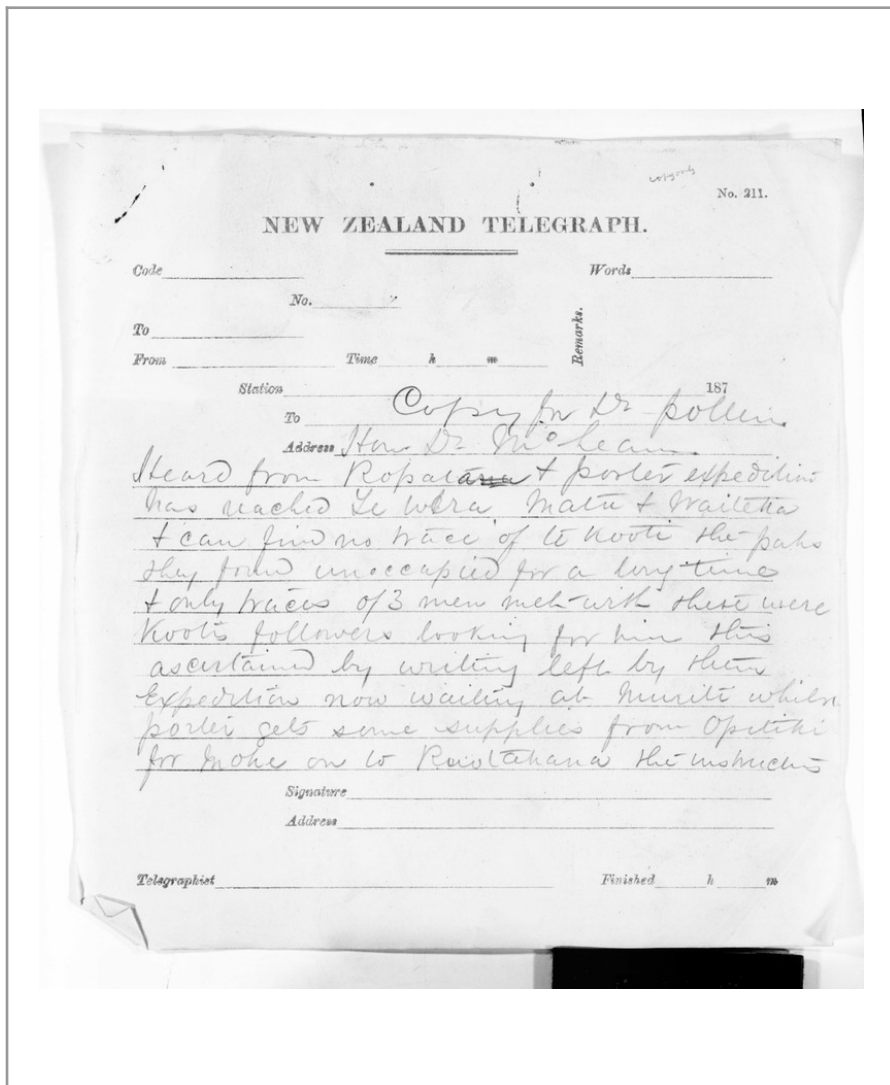 No. 211.
NEW ZEALAND TELEGRAPH.
Code Words
No.
To
From Time h m Remarks.
Station 187
To Copy for Dr Pollen
Address Hon Dr McLean
Heard from Ropata & porter expedition
has reached Te Wera Matu & Waiteka
& can find no trace of te Kooti the pahs
they found unoccupied for a long time
& only traces of 3 men met with these were
Kootis followers looking for him this
ascertained by writing left by them
Expedition now waiting at Muriti whilst
porter gets some supplies from Opitiki
for move on to Ruatahuna the
Signature
Address
Telegraphist Finished h m